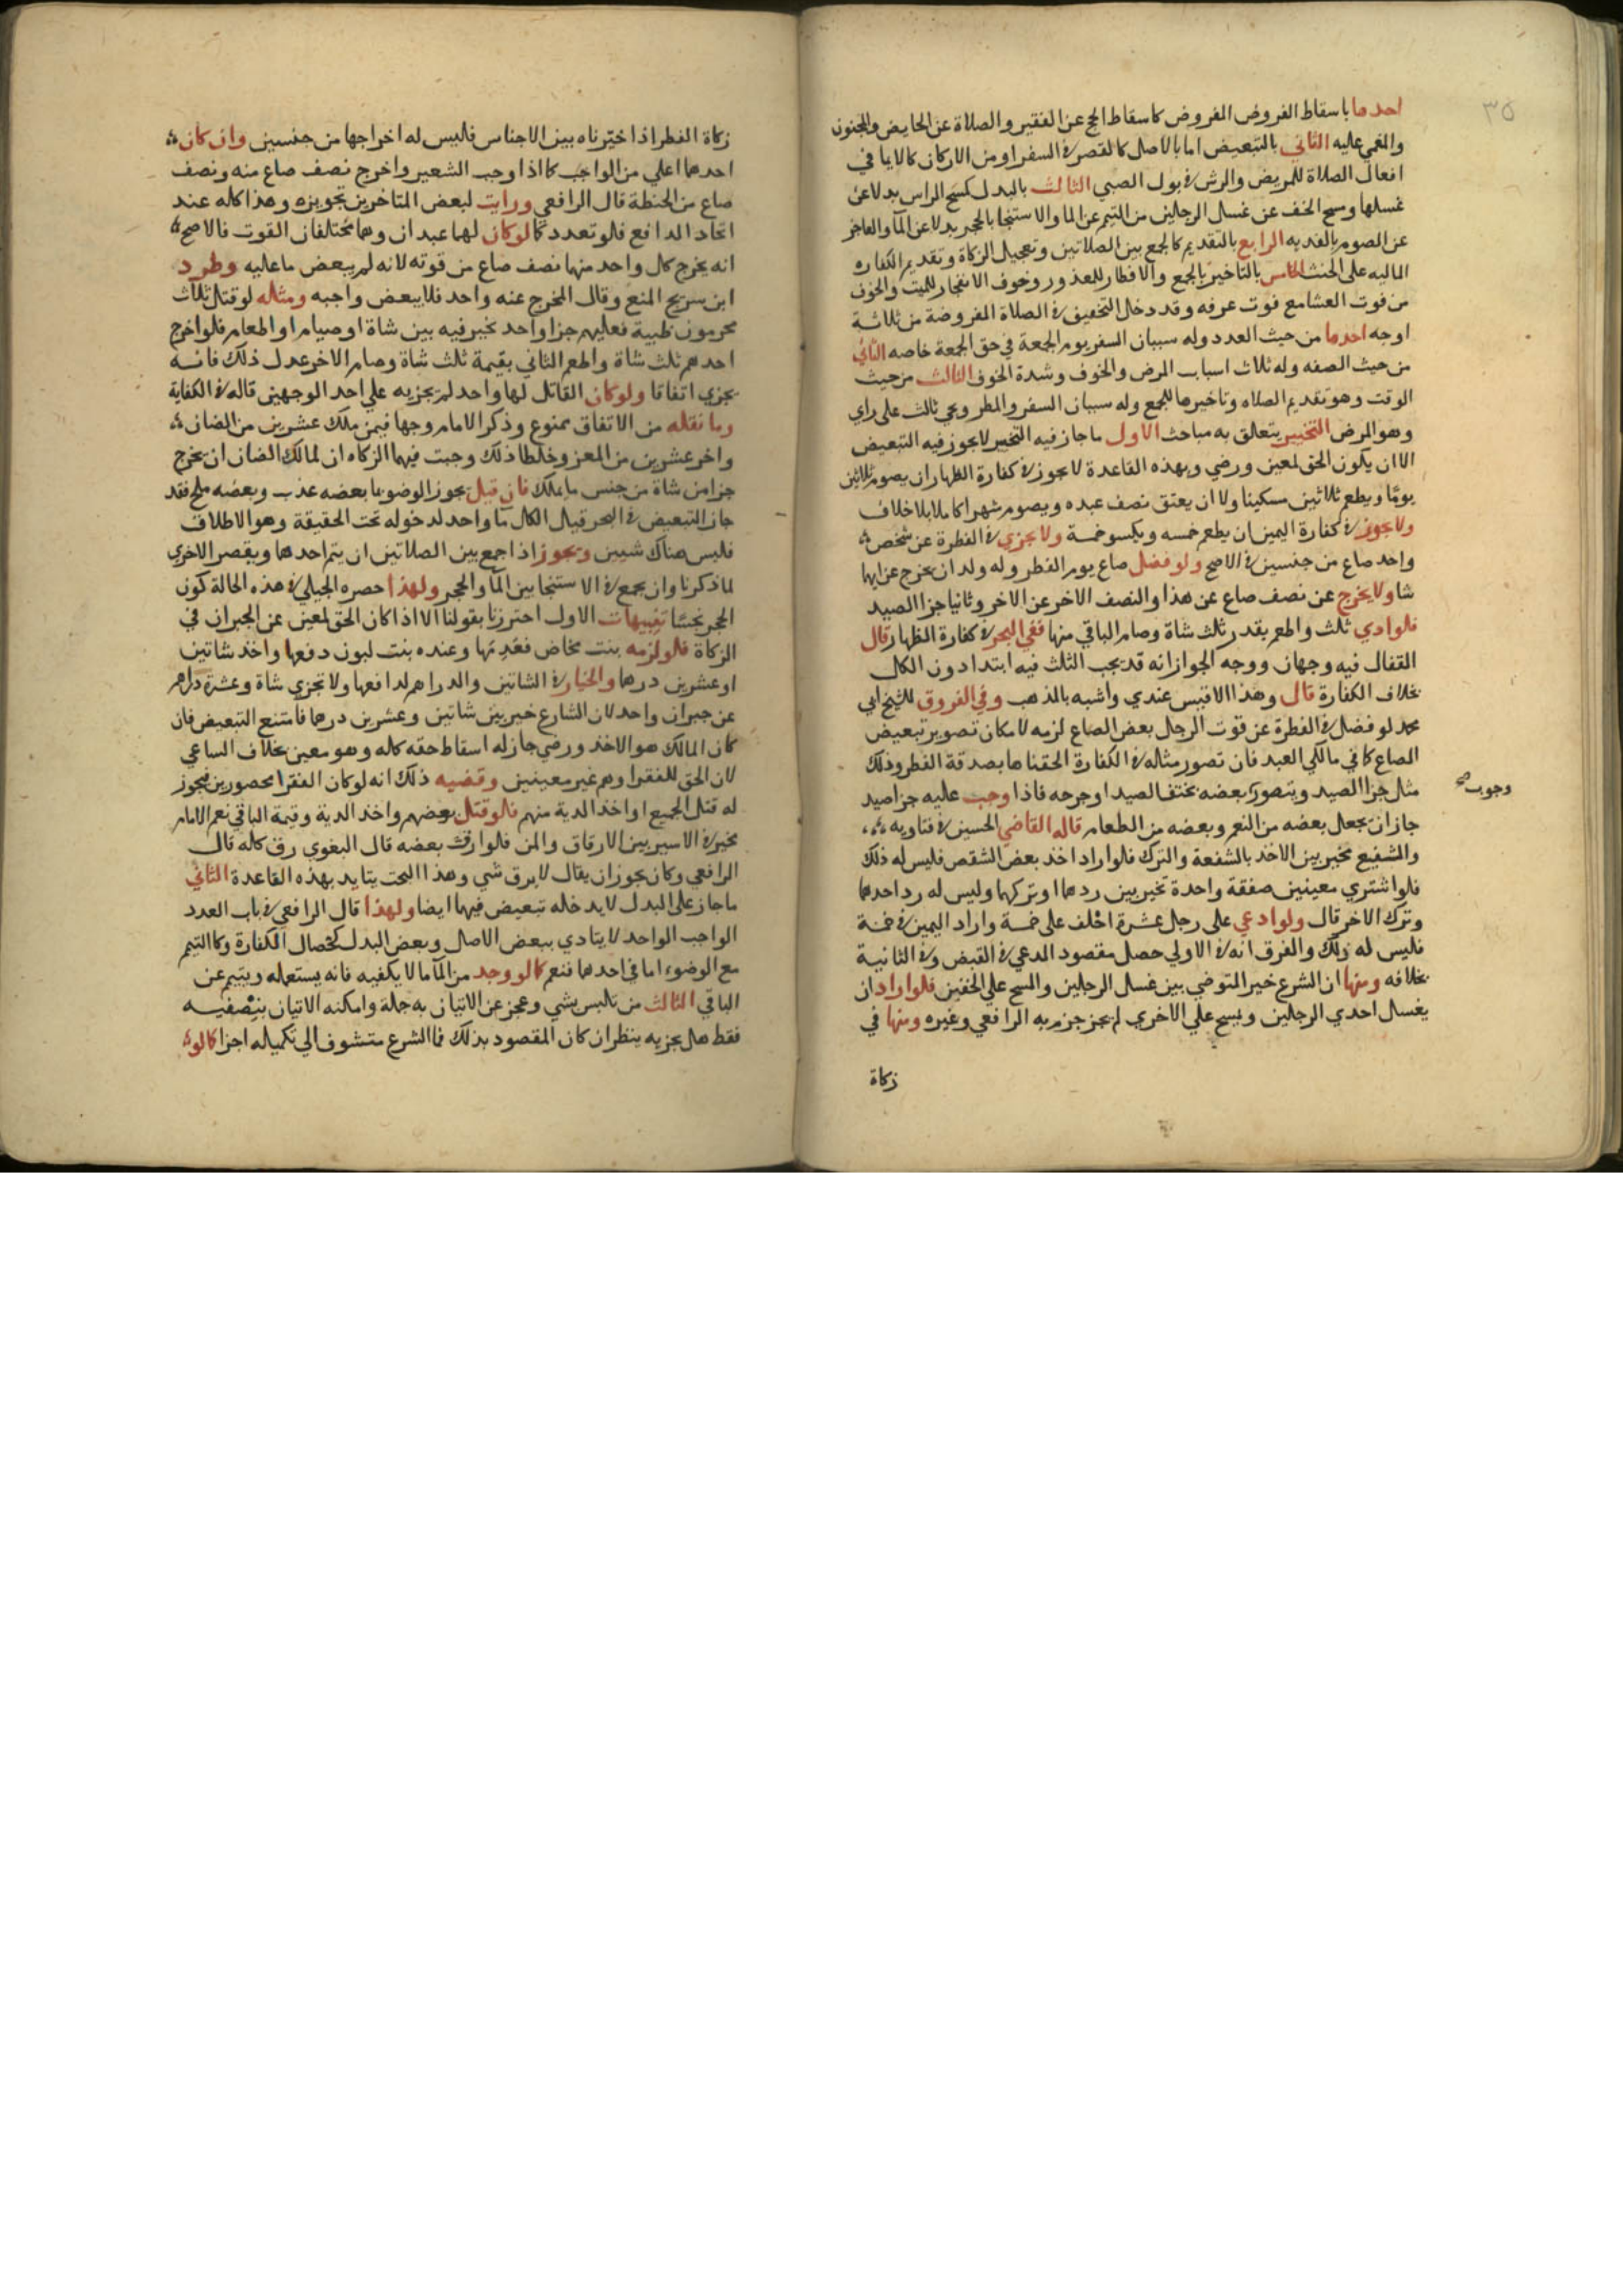 ٣٥
احدها باسقاط الفروض الفروض كاسقاط الحج عن الفقير والصلاة عن الحايض والمجنون
والمغمي عليه الثاني بالتبعيض اما بالاصل كالقصر في السفر او من الاركان كالايما في
افعال الصلاة للمريض والرش في بول الصبي الثالث بالبدل كمسح الراس بدلا عن
غسلها ومسح الخف عن غسل الرجلين من التيمم عن الما والاستنجا بالحجر بدلا عن الما والعاجز
عن الصوم بالفديه الرابع بالتقديم كالجمع بين الصلاتين وتعجيل الزكاة وتقديم الكفاره
الماليه على الحنث الخامس بالتاخير بالجمع والافطار للمعذور وخوف الانفجار للميت والخوف
من فوت العشا مع فوت عرفه وقد دخل التخفيف في الصلاة المفروضة من ثلاثة
اوجه احدها من حيث العدد وله سببان السفر يوم الجمعة في حق الجمعة خاصه الثاني
من حيث الصفه وله ثلاث اسباب المرض والخوف وشدة الخوف الثالث من حيث
الوقت وهو تقديم الصلاه وتاخيرها للجمع وله سببان السفر والمطر ويجي ثالث على راي
وهو المرض التخيير يتعلق به مباحث الاول ما جاز فيه التخيير لا يجوز فيه التبعيض
الا ان يكون الحق لمعين ورضي وبهذه القاعدة لا يجوز في كفارة الظهار ان يصوم ثلاثين
يومًا ويطعم ثلاثين مسكينا ولا ان يعتق نصف عبده ويصوم شهرا كاملا بلا خلاف
ولا يجوز في كفارة اليمين ان يطعم خمسه ويكسو خمسة ولا يجزي في الفطرة عن شخص
واحد صاع من جنسين في الاصح ولو فضل صاع يوم الفطر وله ولدان يخرج عن ايهما
شا ولا يخرج عن نصف صاع عن هذا والنصف الاخر عن الاخر وثانيا جزا الصيد
فلو ادي ثلث واطعم بقدر ثلث شاة وصام الباقي منها ففي البحر في كفارة الظهار قال
القفال فيه وجهان ووجه الجواز انه قد يجب الثلث فيه ابتدا دون الكل
بخلاف الكفارة قال وهذا الاقيس عندي واشبه بالمذهب وفي الفروق للشيخ ابي
محمد لو فضل في الفطرة عن قوت الرجل بعض الصاع لزمه لامكان تصوير تبعيض
الصاع كما في مالكي العبد فان تصور مثاله في الكفارة الحقناها بصدقة الفطر وذلك
مثل جزا الصيد ويتصور بعضه بخنق الصيد او جرحه فاذا وجب عليه جزا صيد
وجوب صح
جاز ان يجعل بعضه من النعم وبعضه من الطعام قاله القاضي الحسين في فتاويه
والشفيع مخير بين الاخذ بالشفعة والترك فلو اراد اخذ بعض الشقص فليس له ذلك
فلو اشتري معينين صفقة واحدة تخير بين ردهما او تركهما وليس له رد احدهما
وترك الاخر قال ولو ادعي على رجل عشرة احلف على خمسة واراد اليمين في خمسة
فليس له ذلك والفرق انه في الاولي حصل مقصود المدعي في القبض وفي الثانية
بخلافه ومنها ان الشرع خير المتوضي بين غسل الرجلين والمسح على الخفين فلو اراد ان
يغسل احدي الرجلين ويمسح علي الاخري لم يجز جزم به الرافعي وغيره ومنها في
زكاة
زكاة الفطر اذا اختيرناه بين الاجناس فليس له اخراجها من جنسين وان كان
احدهما اعلي من الواجب كما اذا وجب الشعير واخرج نصف صاع منه ونصف
صاع من الحنطة قال الرافعي ورايت لبعض المتاخرين تجويزه وهذا كله عند
اتحاد الدافع فلو تعدد كما لو كان لهما عبدان وهما مختلفان القوت فالاصح
انه يخرج كل واحد منهما نصف صاع من قوته لانه لم يبعض ما عليه وطرد
ابن سريج المنع وقال المخرج عنه واحد فلا يبعض واجبه ومثاله لو قتل ثلاث
محرمون ظبية فعليهم جزا واحد تخير فيه بين شاة او صيام او اطعام فلو اخرج
احدهم ثلث شاة واطعم الثاني بقيمة ثلث شاة وصام الاخر عدل ذلك فانه
يجزي اتفاقا ولو كان القاتل لها واحد لم يجزيه علي احد الوجهين قاله في الكفاية
وما نقله من الاتفاق ممنوع وذكر الامام وجها فيمن ملك عشرين من الضان
واخر عشرين من المعز وخلطا ذلك وجبت فيهما الزكاه ان لمالك الضان ان يخرج
جزا من شاة من جنس ما يملك فان قيل يجوز الوضو بما بعضه عذب وبعضه ملح فقد
جاز التبعيض في البحر قيل الكل ما واحد لدخوله تحت الحقيقة وهو الاطلاق
فليس هناك شيين ويجوز اذا جمع بين الصلاتين ان يتم احدهما ويقصر الاخري
لما ذكرنا وان يجمع في الاستنجا بين الما والحجر ولهذا حصره الجيلي في هذه الحالة كون
الحجر نجسًا تنبيهات الاول احترزنا بقولنا الا اذا كان الحق لمعين عن الجبران في
الزكاة فلو لزمه بنت مخاض فقدمها وعنده بنت لبون دفعها واخذ شاتين
او عشرين درهما والخيار في الشاتين والدراهم لدافعها ولا تجزي شاة وعشرة دراهم
عن جبران واحد لان الشارع خير بين شاتين وعشرين درهما فامتنع التبعيض فان
كان المالك هو الاخذ ورضي جاز له اسقاط حقه كله وهو معين بخلاف الساعي
لان الحق للفقرا وهم غير معينين وقضيه ذلك انه لو كان الفقرا محصورين فيجوز
له قتل الجميع او اخذ الدية منهم فلو قتل بعضهم واخذ الدية وقيمة الباقي نعم الامام
مخير في الاسير بين الارقاق والمن فلو ارق بعضه قال البغوي رق كله قال
الرافعي وكان يجوز ان يقال لا يرق شي وهذا البحث يتايد بهذه القاعدة الثاني
ما جاز على البدل لا يدخله تبعيض فيهما ايضا ولهذا قال الرافعي في باب العدد
الواجب الواحد لا يتادي ببعض الاصل وبعض البدل كخصال الكفارة وكالتيمم
مع الوضوء اما في احدهما فنعم كما لو وجد من الما ما لا يكفيه فانه يستعمله ويتيمم عن
الباقي الثالث من تلبس بشي وعجز عن الاتيان به جملة وامكنه الاتيان بنصفيه
فقط هل يجزيه ينظر ان كان المقصود بذلك فما الشرع متشوف الي تكميله اجزا كما لو